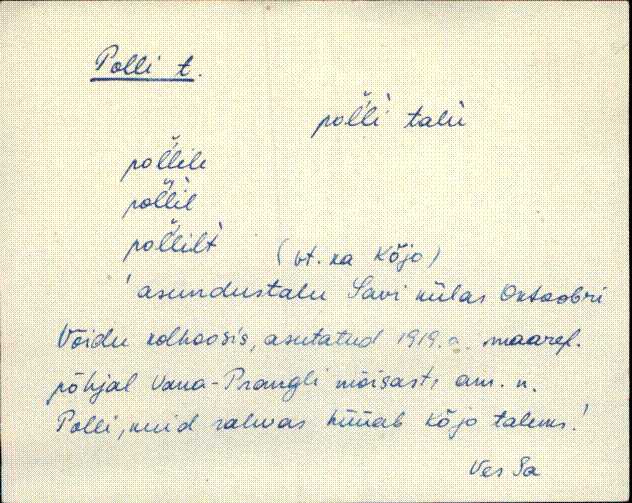 Polli t.
pol̆l̆i talu
pol̆l̆ile
pol̆l̆il
pol̆l̆ilt
(vt. ka Kõjo)
'asundustalu Savi külas Oktoobri
Võidu kolhoosis, asutatud 1919. a. maaref.
põhjal Vana-Prangli mõisast, am. n.
Polli, kuid rahvas hüüab Kõjo taluks.'
Ves Sa